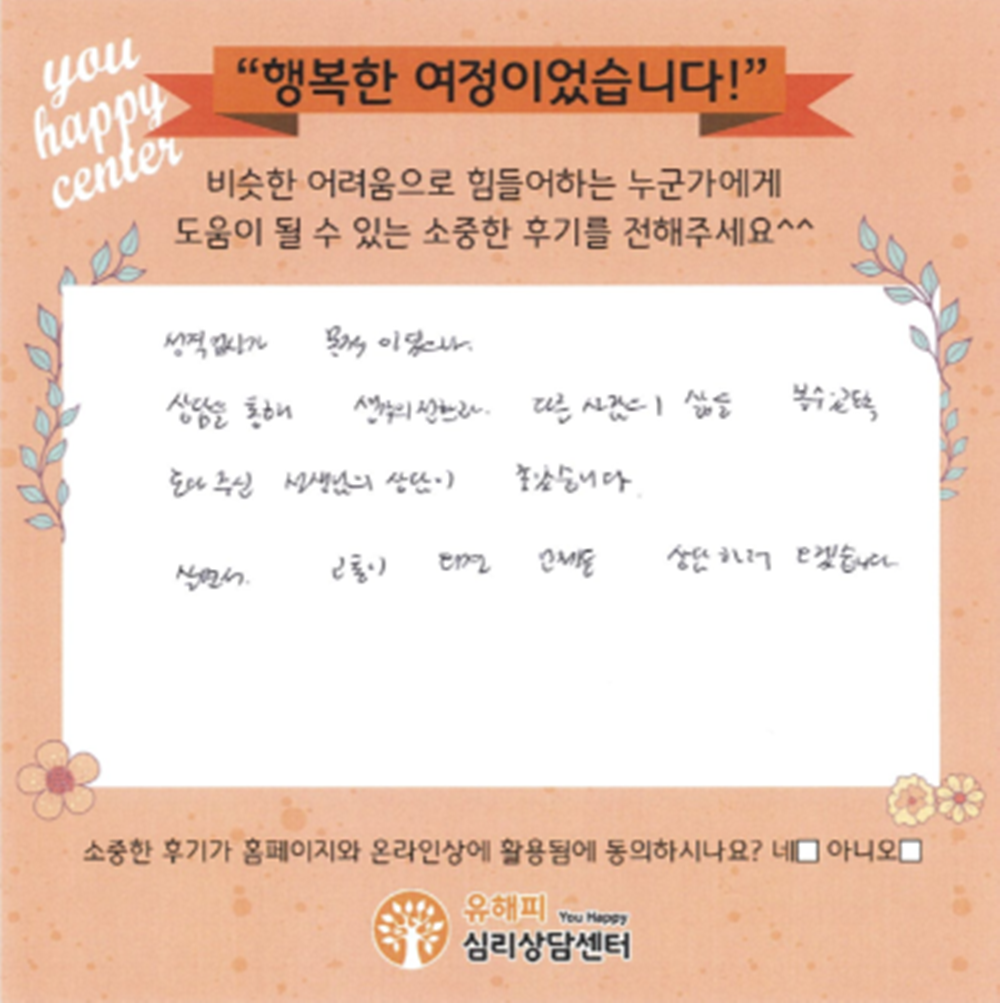 you
happy
center
“행복한 여정이었습니다!”
비슷한 어려움으로 힘들어하는 누군가에게
도움이 될 수 있는 소중한 후기를 전해주세요^^
성적 향상가 목적 이었으나.
상담을 통해 생각의 전환과. 다른 사람들의 삶을 볼수있도록
도와 주신 선생님의 상담이 좋았습니다.
살면서. 고통이 되면 언제든 상담 하러 오겠습니다.
소중한 후기가 홈페이지와 온라인상에 활용됨에 동의하시나요? 네□ 아니오□
유해피 You Happy
심리상담센터